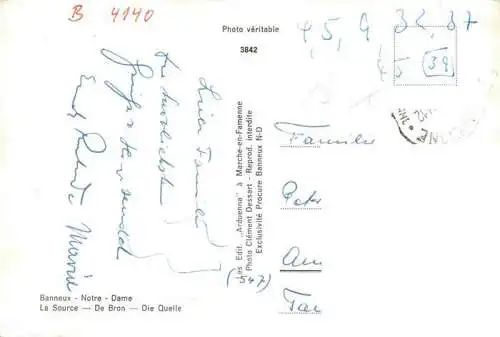 B 4140
Photo véritable
3842
45, 9 32,37
45 (39)
Liebe Familie
die herzlichsten
Grüße sendet
Euch Marie
Les Edit. „Arduenna" à Marche-en-Famenne
Photo Clément Dessart - Reprod. interdite
Exclusivité Procure Banneux N-D
(547)
Familie
Peter
Am
Banneux - Notre - Dame
La Source — De Bron — Die Quelle